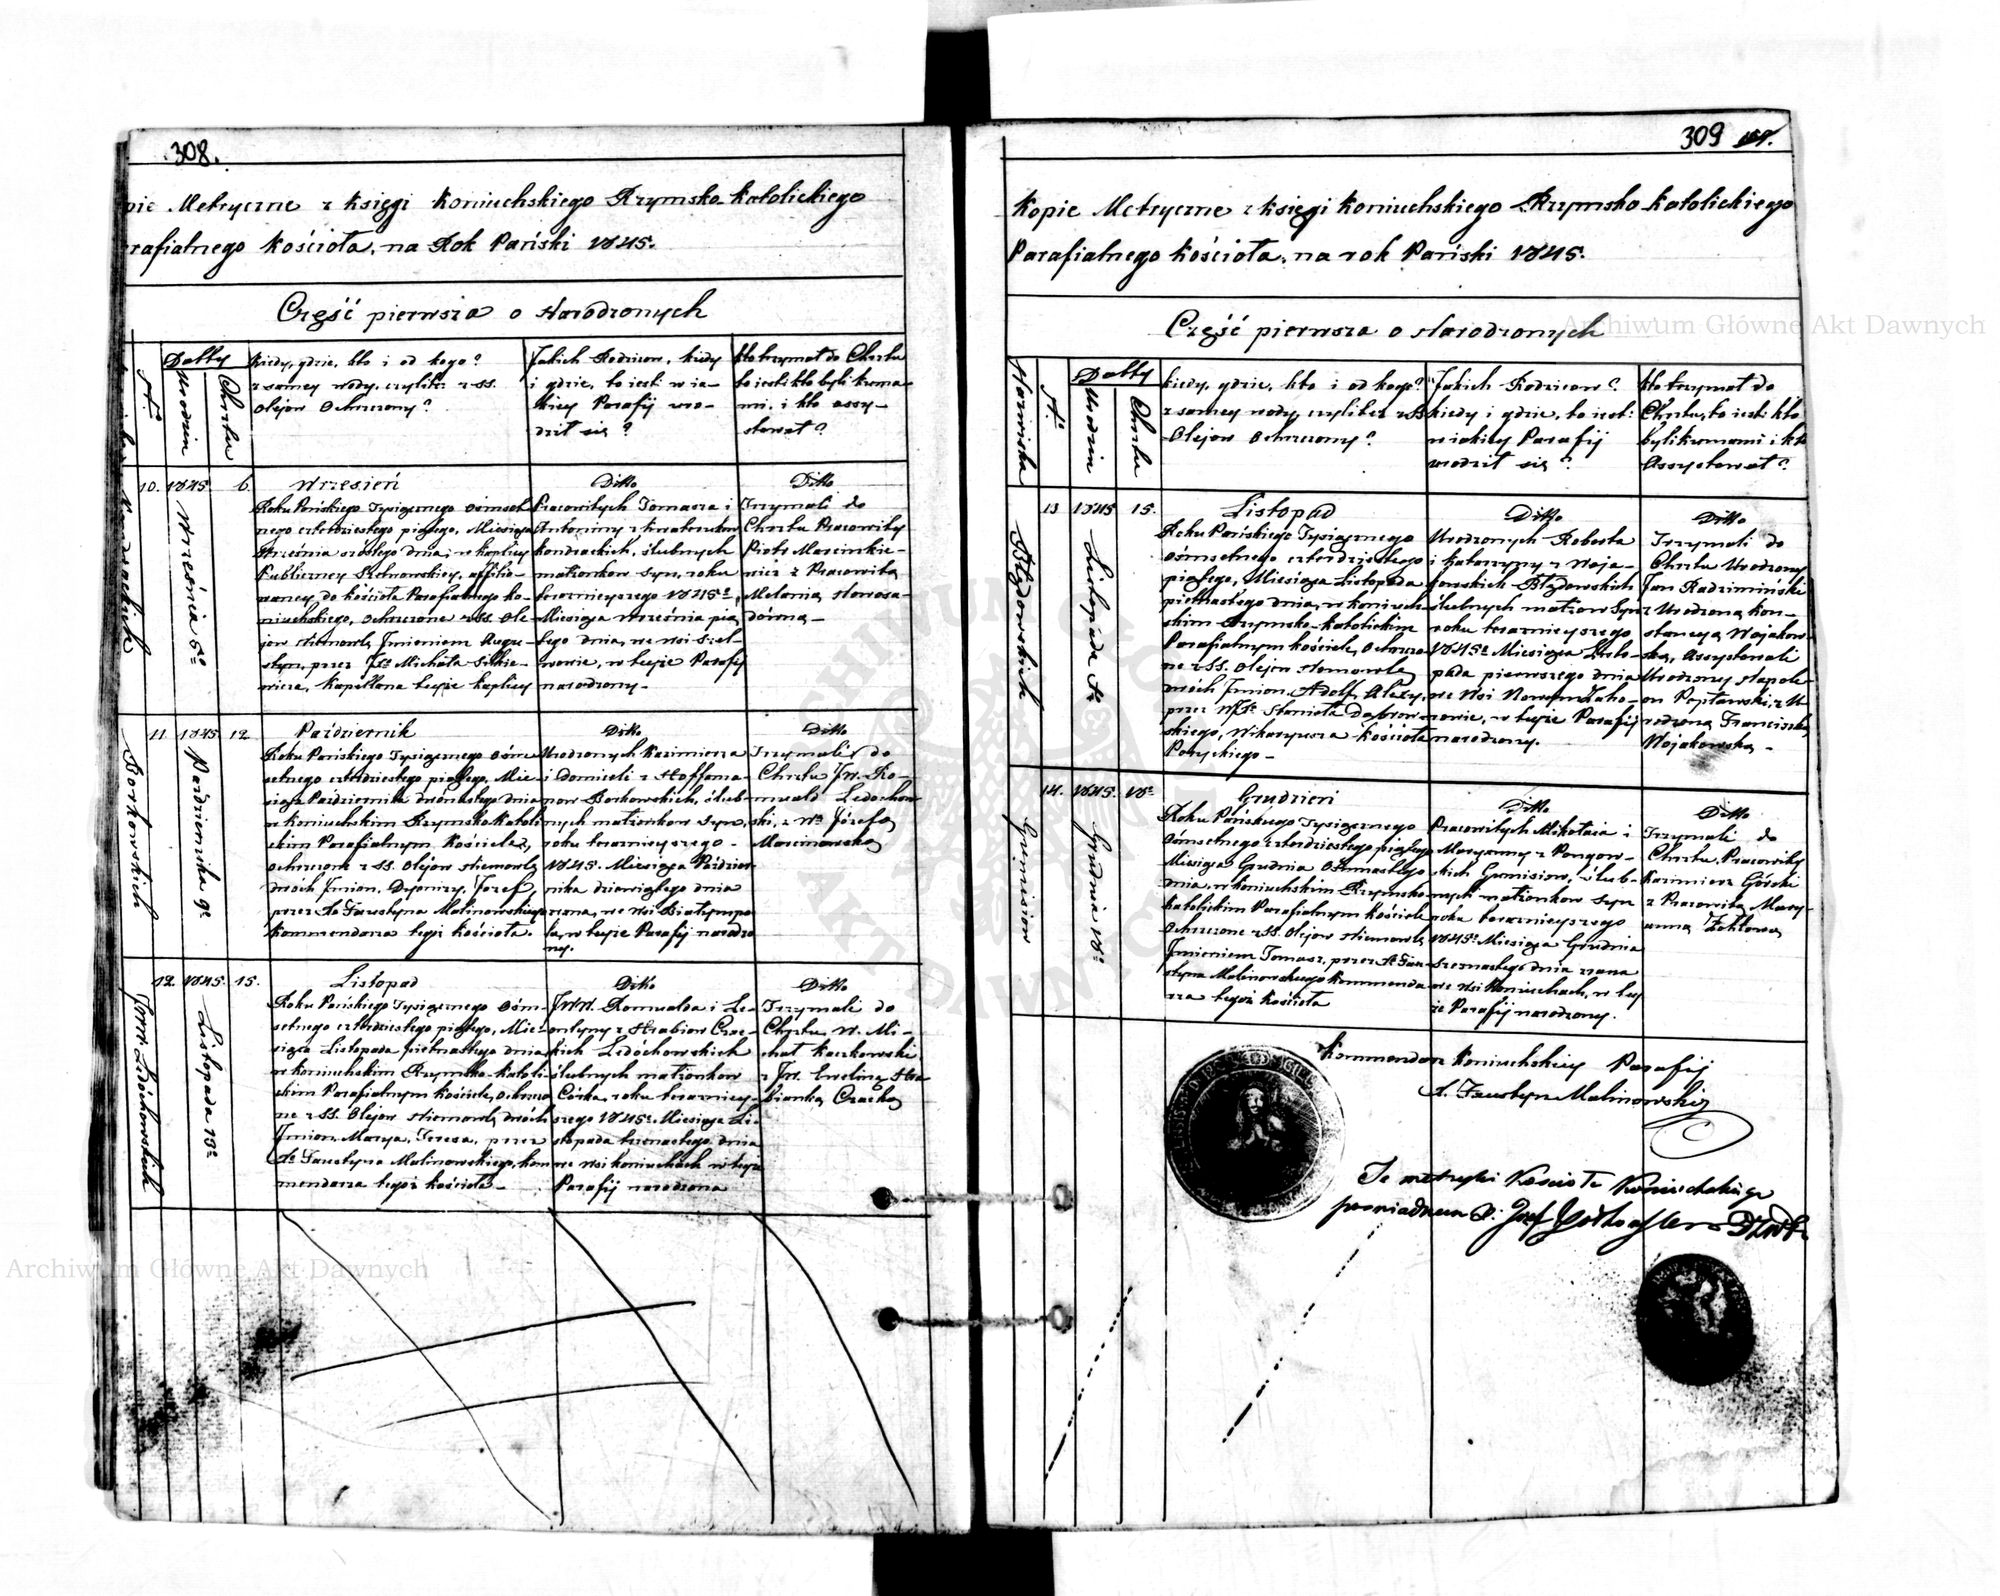 308.
pie Metryczne z księgi Koniuchskiego Rzymsko-Katolickiego
rafialnego Kościoła, na Rok Pański 1845.
Część pierwsza o Narodzonych
Datty
No
Urodzin
Chrztu
Kiedy, gdzie, kto i od kogo?
z samey wody, czyliteż z SS.
Olejow Ochrzczony?
Jakich Rodzicow, kiedy
i gdzie, to iest: w ia-
kiey Parafij uro-
dził się?
Kto trzymał do Chrztu
to iest: kto byli kuma-
mi, i kto assy-
stował?
10. 1845. 6.
Września 5o
Kondrackich
Wrzesień
Roku Pańskiego Tysiącznego osimset
nego czterdziestego piątego, Miesiąca
Września szóstego dnia, w kaplicy
Publiczney Szelwowskiey, affilio-
waney do kościoła Parafialnego Ko-
niuchskiego, ochrzczone z SS. Ole-
jow niemowlę Jmieniem Augu-
styn, przez Jx Michała
kapellana teyże kaplicy
Ditto
Pracowitych Tomasza i
Antoniny z
Kondrackich, ślubnych
małżonkow syn, roku
teraznieyszego 1845o,
Miesiąca września pią
tego dnia, we wsi Szel-
wowie, w teyże Parafij
narodzony.-
Ditto
Trzymali do
Chrztu Pracowity
Piotr Marcinkie-
wicz z Pracowitą
Melanią
11. 1845. 12.
Października 9o
Borkowskich
Październik
Roku Pańskiego Tysiącznego ośm
setnego czterdziestego piątego, Mie-
siąca Października dwónastego dnia
w koniuchskim Rzymsko-Katoli
ckim Parafialnym Kościele,
ochrzczone z SS. Olejow niemowlę
dwóch Jmion, Dyonizy, Jozef,
przez X Faustyna Malinowskiego
Kommendarza tegoż Kościoła.
Ditto
Urodzonych Kazimierza
i Domiceli z Hoffma-
now Borkowskich, ślub-
nych małżonkow syn,
roku teraznieyszego-
1845. Miesiąca Paździer
nika dziewiątego dnia
zrana, we wsi Białympo
lu, w teyże Parafij narodzo
ny.
Ditto
Trzymali do
Chrztu JW. Ro-
muald Ledochow
ski, z Wą Józefą
Marcinowską
12. 1845. 15.
Listopada 13o
Ledóchowskich
Listopad
Roku Pańskiego Tysiącznego Ośm-
setnego czterdziestego piątego, Mie-
siąca Listopada pietnastego dnia
w koniuchskim Rzymsko-Katoli-
ckim Parafialnym Kościele, ochrzczo
ne z SS. Olejow niemowlę dwóch
Jmion, Marya, Teresa, przez
Xa Faustyna Malinowskiego, kom
mendarza tegoż kościoła-
Ditto
JWW. Romualda i Le-
ontyny z Hrabiow Czac-
kich Ledóchowskich
ślubnych małżonkow
Córka, roku teraźniey-
szego 1845o. Miesiąca Li-
stopada trzynastego dnia
we wsi koniuchach w teyże
Parafij narodzona
Ditto
Trzymali do
Chrztu, W. Mi-
chał Kaczkowski
z JW. Eweliną Hra
bianką Czacką
309
Kopie Metryczne z księgi Koniuchskiego Rzymsko-Katolickiego
Parafialnego Kościoła, na rok Pański 1845.
Część pierwsza o Narodzonych
Nazwiska
No
Datty
Urodzin
Chrztu
Kiedy, gdzie, kto i od kogo?
z samey wody, czyliteż z SS
Olejow Ochrzczony?
Jakich Rodzicow?
kiedy i gdzie, to iest:
w iakiey Parafij
urodził się?
Kto trzymał do
Chrztu, to iest: kto
byli kumami i kto
Assystował?
13 1845 15.
Listopada 1o
Błędowskich
Listopad
Roku Pańskiego Tysiącznego
Ośmsetnego czterdziestego
piątego, Miesiąca Listopada
pietnastego dnia, w koniuch-
skim Rzymsko-Katolickim
Parafialnym kościele, ochrzczo-
ne z SS. Olejow niemowlę
dwóch Jmion, Adolf, Alexy,
przez Stanisła Dąbrow-
skiego, Wikaryusza Kościoła
Poryckiego-
Ditto
Urodzonych Roberta
i Katarzyny z Woja-
kowskich Błędowskich
ślubnych małżon syn
roku teraznieyszego
1845o Miesiąca Listo-
pada pierwszego dnia
we wsi Nowym
w teyże Parafij
narodzony.
Ditto
Trzymali do
Chrztu Urodzony
Jan Radzimiński
z Urodzoną Kon-
stancyą Wojakow-
ską, Assystowali
Urodzony Napole-
on Popławski, z U-
rodzoną Franciszką
Wojakowską-
14. 1845. 18o
Grudnia 16o
Grudzień
Roku Pańskiego Tysiącznego
Ośmsetnego czterdziestego piątego
Miesiąca Grudnia Ośmnastego
dnia, w koniuchskim Rzymsko-
Katolickim Parafialnym kościele
ochrzczone z SS. Olejow niemowlę
Jmieniem Tomasz, przez X Fau-
styna Malinowskiego Kommenda
rza tegoż Kościoła
Ditto
Pracowitych Mikołaia i
Maryanny z
ślub-
nych małżonkow syn
roku teraznieyszego
1845o Miesiąca Grudnia
Szesnastego dnia zrana
we wsi Koniuchach, w tey
że Parafij narodzony.
Ditto
Trzymali do
Chrztu, Pracowity
Kazimierz Górski
z Pracowitą Mary-
anną
Kommendarz Koniuchskiey Parafij
X. Faustyn Malinowski
Te metryki Kościoła Koniuchskiego
poswiadczam X. Jozef
Archiwum Główne Akt Dawnych
Archiwum Główne Akt Dawnych
ARCHIWUM GŁÓWNE AKT DAWNYCH